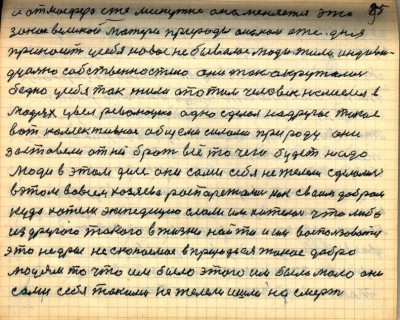 и атмосфера ежеминутно она меняется это 95
закон великой Матери природы она нам еже дня
приносит у себя новое не бывалое люди жили индиви-
дуально собственностью они так окружались
бедно у себя так жили а потом человек нашелся в
людях
вот коллективная общими силами природу они
заставляли от ней брать всё то чего будет надо
люди в этом деле они сами себя не жалели сделались
в этом во всем хозяева распоряжались как своим добром
куда хотели экспедицию слали им хотелось что либо
из другого такого в жизни найти и им воспользоваться
это недры не ископаемое в природе такое добро
людям то что им было этого им было мало они
сами себя такими не жалели и шли на смерть